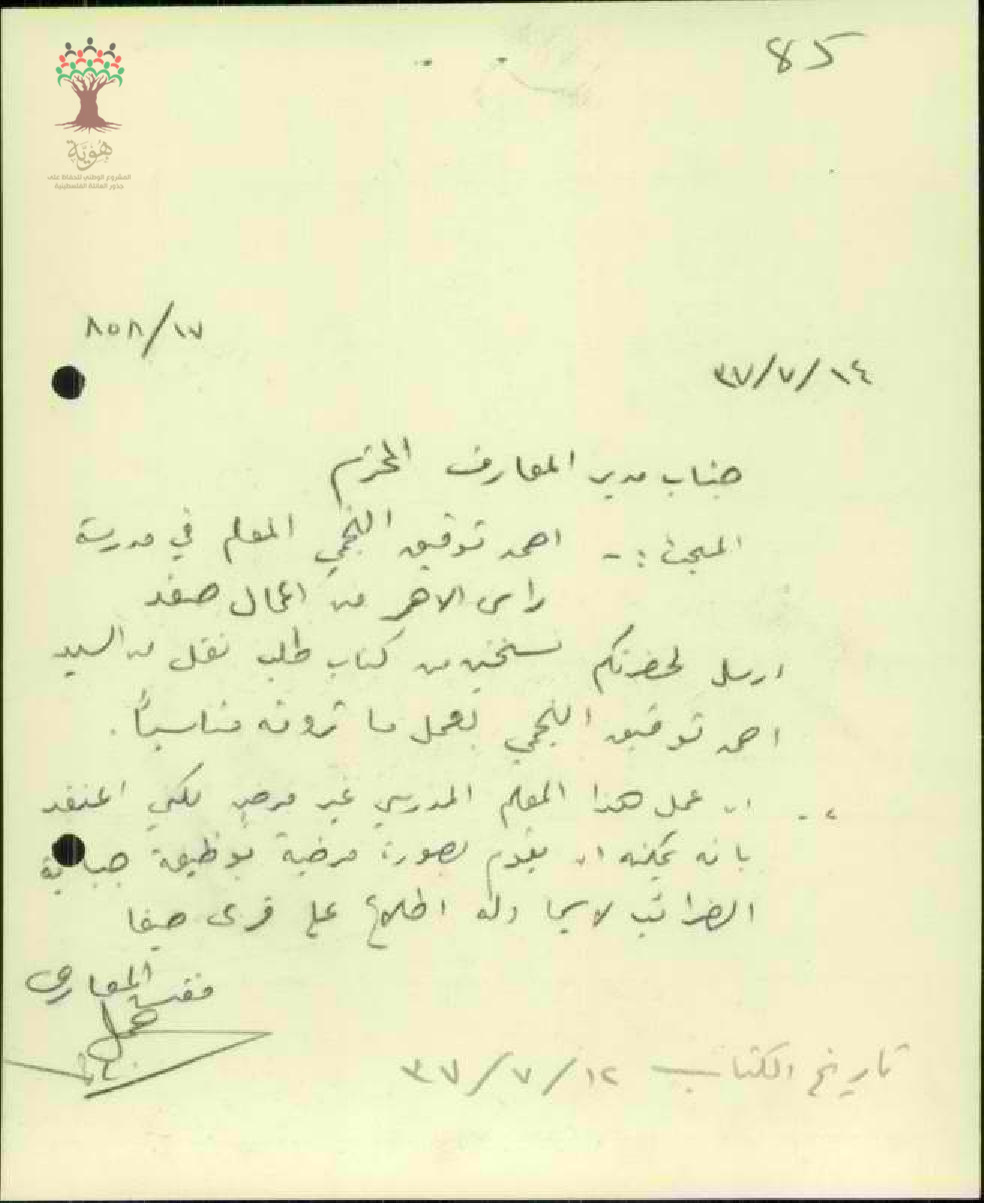 85
هوية
المشروع الوطني للحفاظ على
جذور العائلة الفلسطينية
٨٥٨/١٧
٣٧/٧/١٤
جناب مدير المعارف المحترم
المبحث :- احمد توفيق النجمي المعلم في مدرسة
راس الاحمر من اعمال صفد
ارسل لحضرتكم نسختين من كتاب طلب نقل من السيد
احمد توفيق النجمي لعمل ما ترونه مناسباً.
٢- ان عمل هذا المعلم المدرسي غير مرضٍ لكني اعتقد
بانه يمكنه ان يقوم بصورة مرضية بوظيفة جباية
الضرائب لاسيما وله اطلاع على قرى حيفا
مفتش المعارف
تاريخ الكتاب ٣٧/٧/١٢